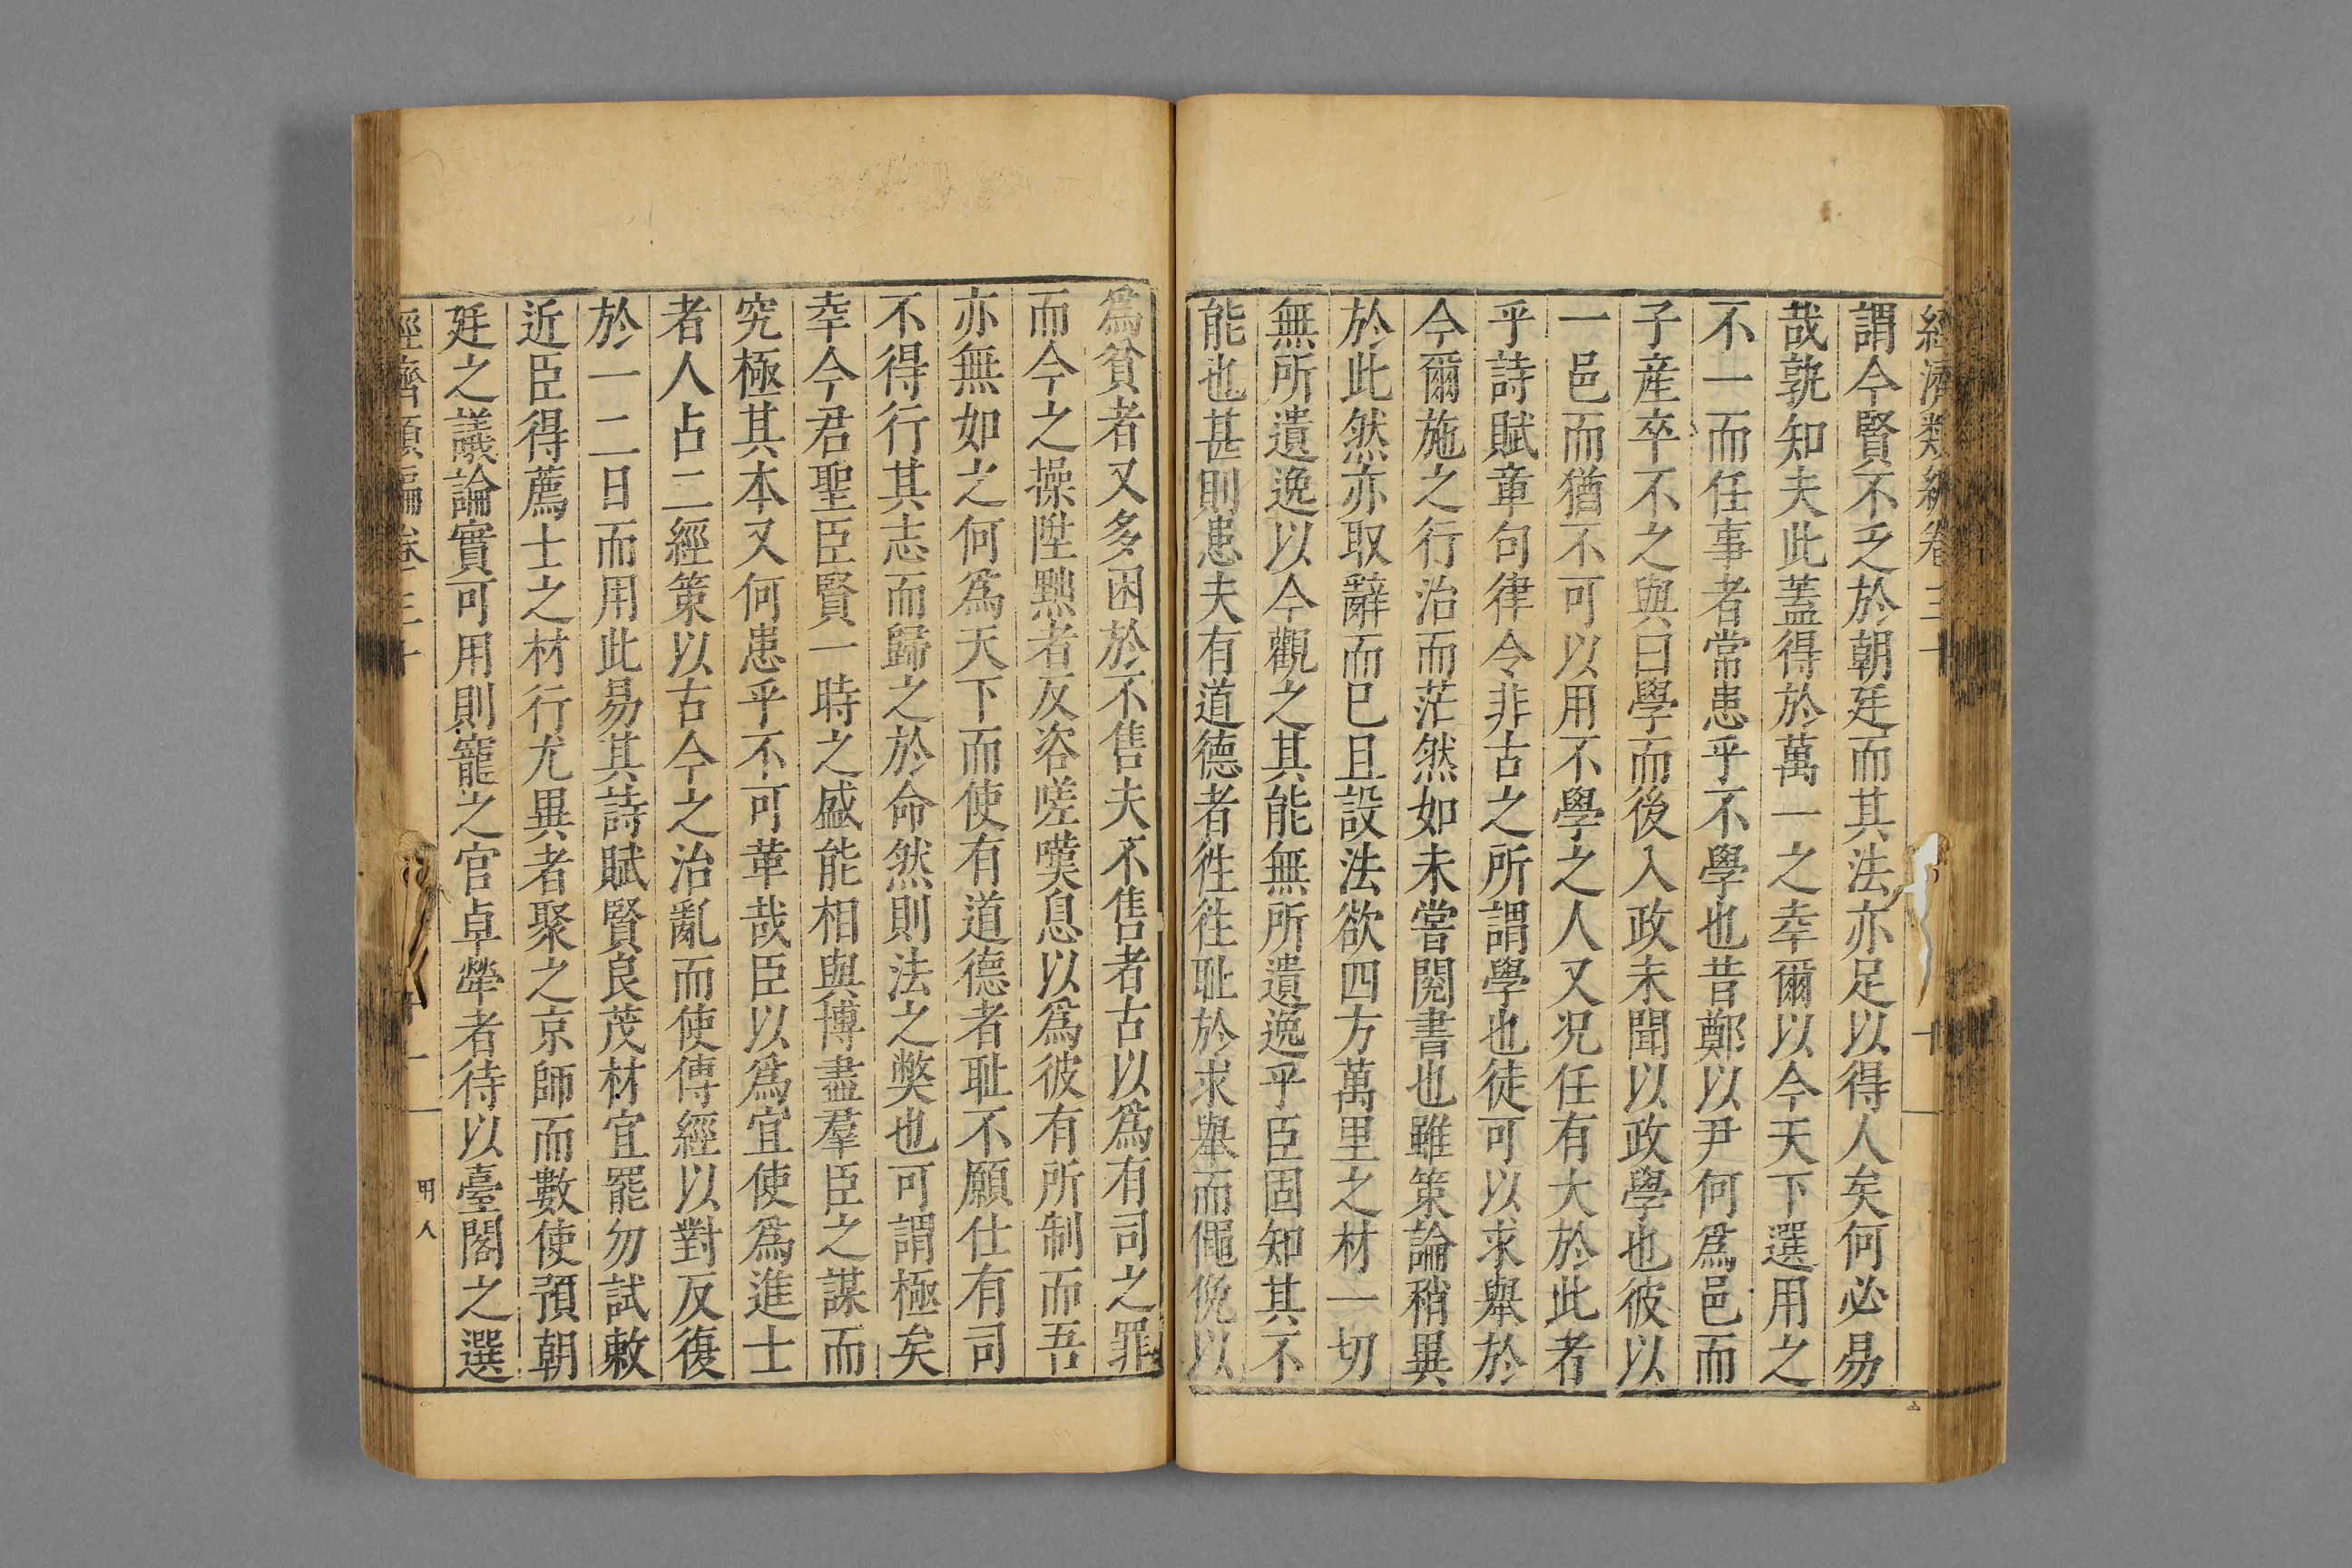 經濟類編卷三十
十
謂今賢不乏於朝廷而其法亦足以得人矣何必易
哉孰知夫此蓋得於萬一之幸爾以今天下選用之
不一而任事者常患乎不學也昔鄭以尹何爲邑而
子産卒不之與曰學而後入政未聞以政學也彼以
一邑而猶不可以用不學之人又況任有大於此者
乎詩賦章句律令非古之所謂學也徒可以求舉於
今爾施之行治而茫然如未嘗閱書也雖策論稍異
於此然亦取辭而已且設法欲四方萬里之材一切
無所遺逸以今觀之其能無所遺逸乎臣固知其不
能也甚則患夫有道德者徃徃耻於求舉而僶俛以
爲貧者又多困於不售夫不售者古以爲有司之罪
而今之操陞黜者反咨嗟嘆息以爲彼有所制而吾
亦無如之何爲天下而使有道德者耻不願仕有司
不得行其志而歸之於命然則法之獘也可謂極矣
幸今君聖臣賢一時之盛能相與博盡羣臣之謀而
究極其本又何患乎不可革哉臣以爲宜使爲進士
者人占二經策以古今之治亂而使傳經以對反復
於一二日而用此易其詩賦賢良茂材宜罷勿試敕
近臣得薦士之材行尤異者聚之京師而數使預朝
廷之議論實可用則寵之官卓犖者待以臺閣之選
經濟類編卷三十
十一
明人